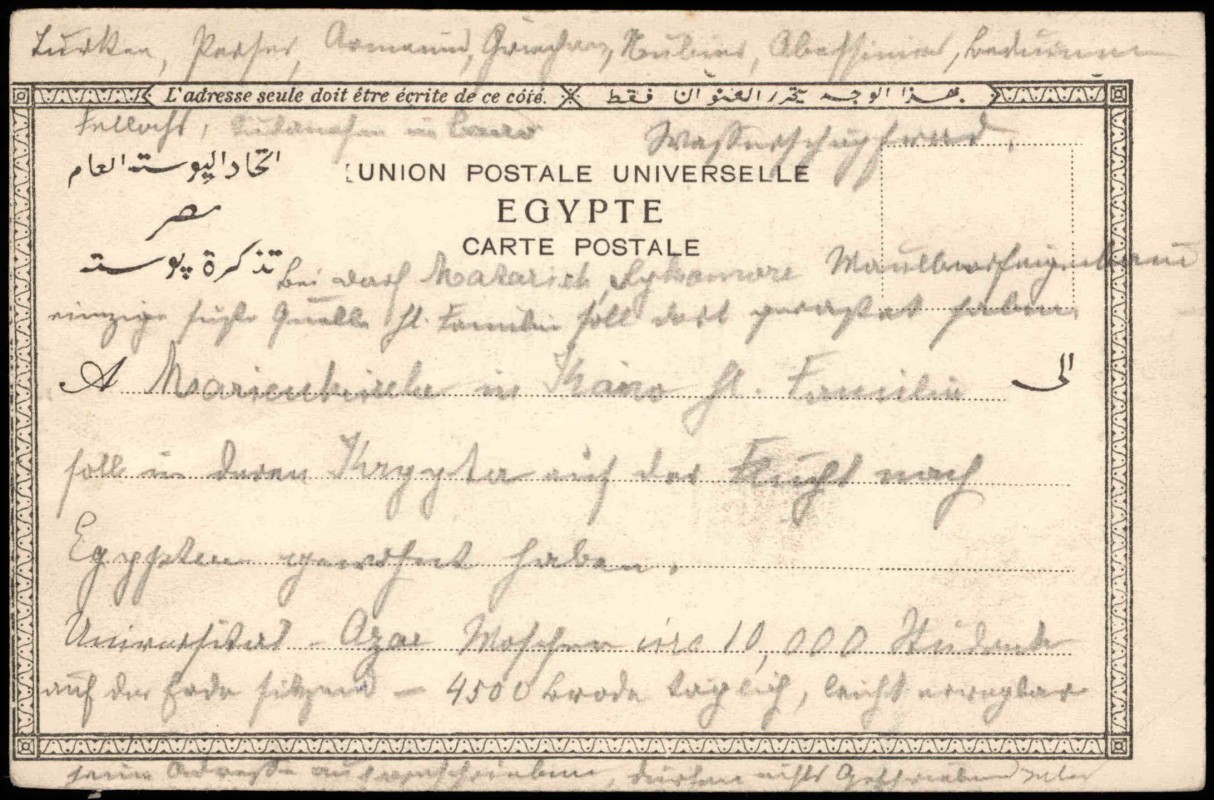 Türken, Perser, Armenier, Griechen, Nubier, Abessinier, Beduinen
L'adresse seule doit être écrite de ce côté. بهذا الوجه يحرر العنوان فقط
Fellachs, Sudanesen in
Wasserschöpfrad.
اتحاد اليوسته العام
UNION POSTALE UNIVERSELLE
مصر
EGYPTE
CARTE POSTALE
تذكرة پوسته
bei Dorf Matarieh, Sykomore Maulbeerfeigenbaum
einzige süße Quelle hl. Familie soll dort gerastet haben.
A Marienkirche in Kairo hl. Familie الى
soll in deren Krypta auf der Flucht nach
Egypten gewohnt haben.
Universität - Azar Moschee 10,000 Studente
auf der Erde sitzend - 4500 Brode täglich, leicht erregbar
keine Adresse dürfen nichts